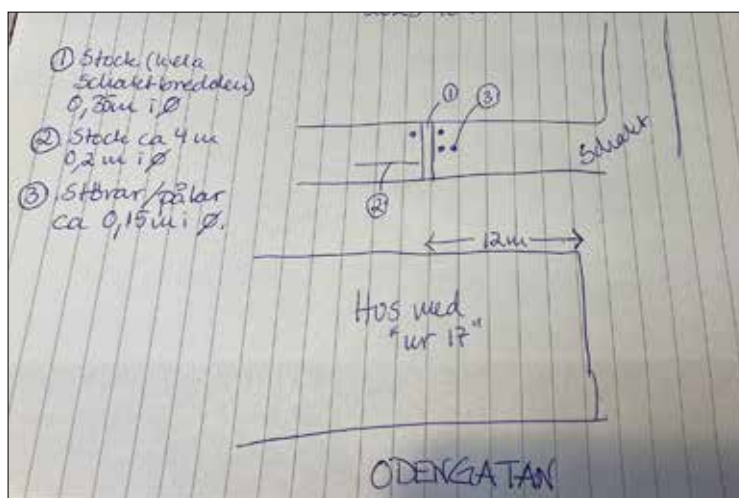 ① Stock (hela
schaktbredden)
0,35m i Ø
② Stock ca 4 m
0,2 m i Ø
③ Störar/pålar
ca 0,15 m i Ø.
①
③
②
Schakt
12m
Hus med
"nr 17"
ODENGATAN